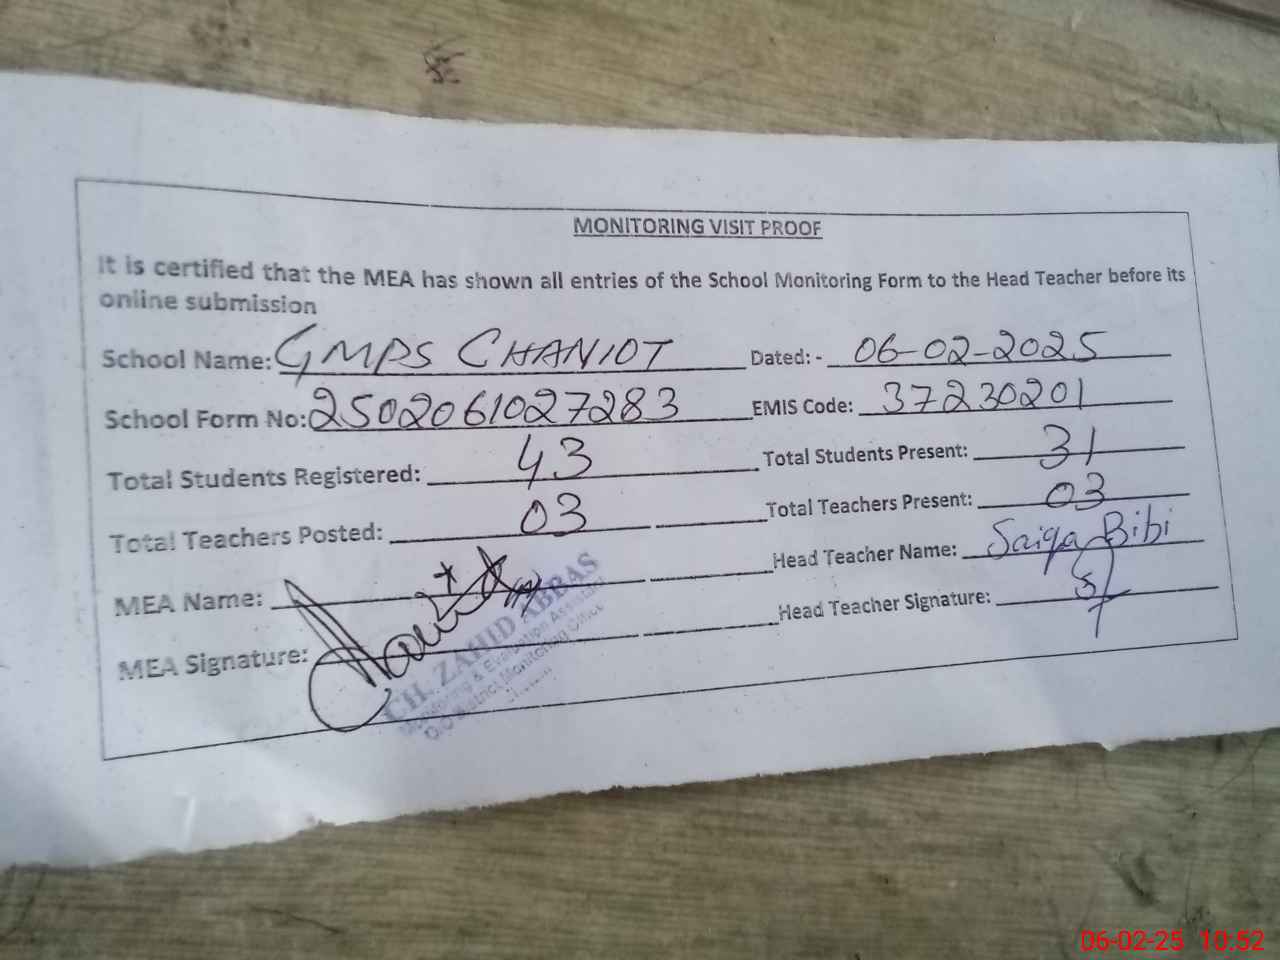 MONITORING VISIT PROOF
It is certified that the MEA has shown all entries of the School Monitoring Form to the Head Teacher before its
online submission
School Name: GMPS CHANIOT Dated: - 06-02-2025
School Form No: 2502061027283 EMIS Code: 37230201
Total Students Registered: 43 Total Students Present: 31
Total Teachers Posted: 03 Total Teachers Present: 03
MEA Name: Head Teacher Name: Saiqa Bibi
MEA Signature: Head Teacher Signature:
CH. ZAHID ABBAS
Monitoring & Evaluation Assistant
O/O District Monitoring Office
06-02-25 10:52